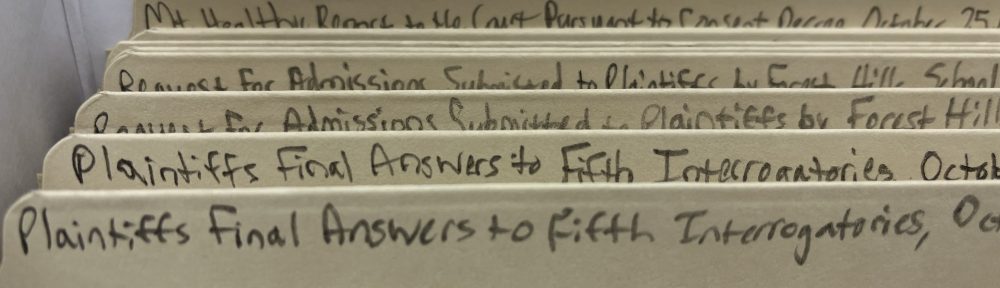 Mt Healthy Report to the Court Pursuant to Consent Decree October 25,
Request For Admissions Submitted to Plaintiffs by Forest Hills School
Request For Admissions Submitted to Plaintiffs by Forest Hill
Plaintiffs Final Answers to Fifth Interrogatories, Octob
Plaintiffs Final Answers to Fifth Interrogatories, Oc